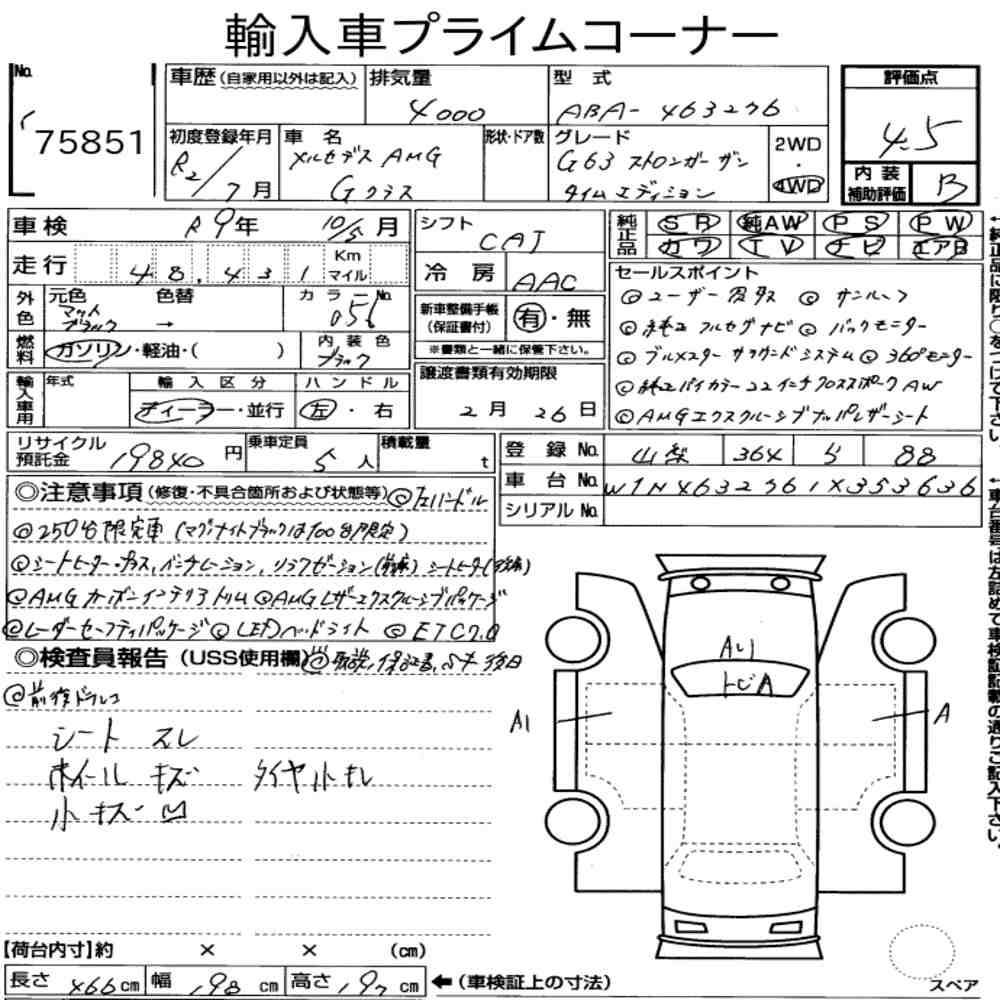 輸入車プライムコーナー
No. 75851
車歴(自家用以外は記入)
排気量 4000
型式 ABA-463276
評価点 4.5
初度登録年月 R2/7月
車名 メルセデスAMG Gクラス
形状・ドア数
グレード G63 ストロンガーザンタイムエディション
2WD・4WD
内装補助評価 B
車検 R9年 10/5月
走行 48,431 Km マイル
シフト CAT
冷房 AAC
純正品 SR 純AW PS PW
カワ TV ナビ エアB
外色 元色 マットブラック 色替 → カラーNo. 056
燃料 ガソリン・軽油・( )
内装色 ブラック
新車整備手帳(保証書付) 有・無
※書類と一緒に保管下さい。
輸入車用 年式
輸入区分 ディーラー・並行
ハンドル 左・右
譲渡書類有効期限 2月26日
セールスポイント
◎ユーザー買取 ◎サンルーフ
◎純正フルセグナビ ◎バックモニター
◎ブルメスターサラウンドシステム ◎360°モニター
◎純正バイカラー22インチクロススポークAW
◎AMGエクスクルーシブナッパレザーシート
リサイクル預託金 19840円
乗車定員 5人
積載量 t
登録No. 山梨 364 ら 88
車台No. W1N4632761X353636
シリアルNo.
◎注意事項(修復・不具合箇所および状態等) ◎左ハンドル
◎250台限定車(マグナイトブラックは100台限定)
◎シートヒータープラス、ベンチレーション、リラクゼーション(前席) シートヒーター(後席)
◎AMGカーボンインテリアトリム ◎AMGレザーエクスクルーシブパッケージ
◎レーダーセーフティパッケージ ◎LEDヘッドライト ◎ETC2.0
◎検査員報告(USS使用欄) ◎取説、保証書、Sキー後日
◎前後ドラレコ
シート スレ
ホイール キズ タイヤ小キレ
小キズ 凹
A1
トビA
A1
A
【荷台内寸】約 × × (cm)
長さ 466cm 幅 198cm 高さ 197cm ←(車検証上の寸法)
スペア
←純正品に限り○をつけて下さい。
←車台番号は左詰めて車検証記載の通りご記入下さい。